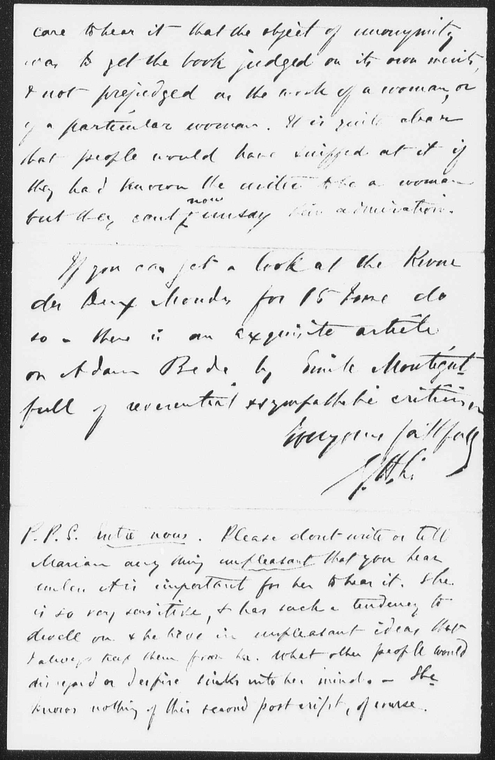 care to hear it that the object of anonymity
was to get the book judged on its own merits,
& not prejudged as the work of a woman, or
of a particular woman. It is quite clear
that people would have sniffed at it if
they had known the writer to be a woman
but they can't now unsay their admiration.
If you can get a look at the Revue
des Deux Mondes for 15 June do
so – there is an exquisite article
on Adam Bede by Emile Montégut
full of reverential & sympathetic criticism
Ever yours faithfully
G.H.L.
P.P.S. Entre nous. Please don't write or tell
Marian any thing unpleasant that you hear
unless it is important for her to hear it. She
is so very sensitive, & has such a tendency to
dwell on & believe in unpleasant ideas that
I always keep them from her. What other people would
disregard or despise sinks into her mind. – She
knows nothing of this second postscript, of course.